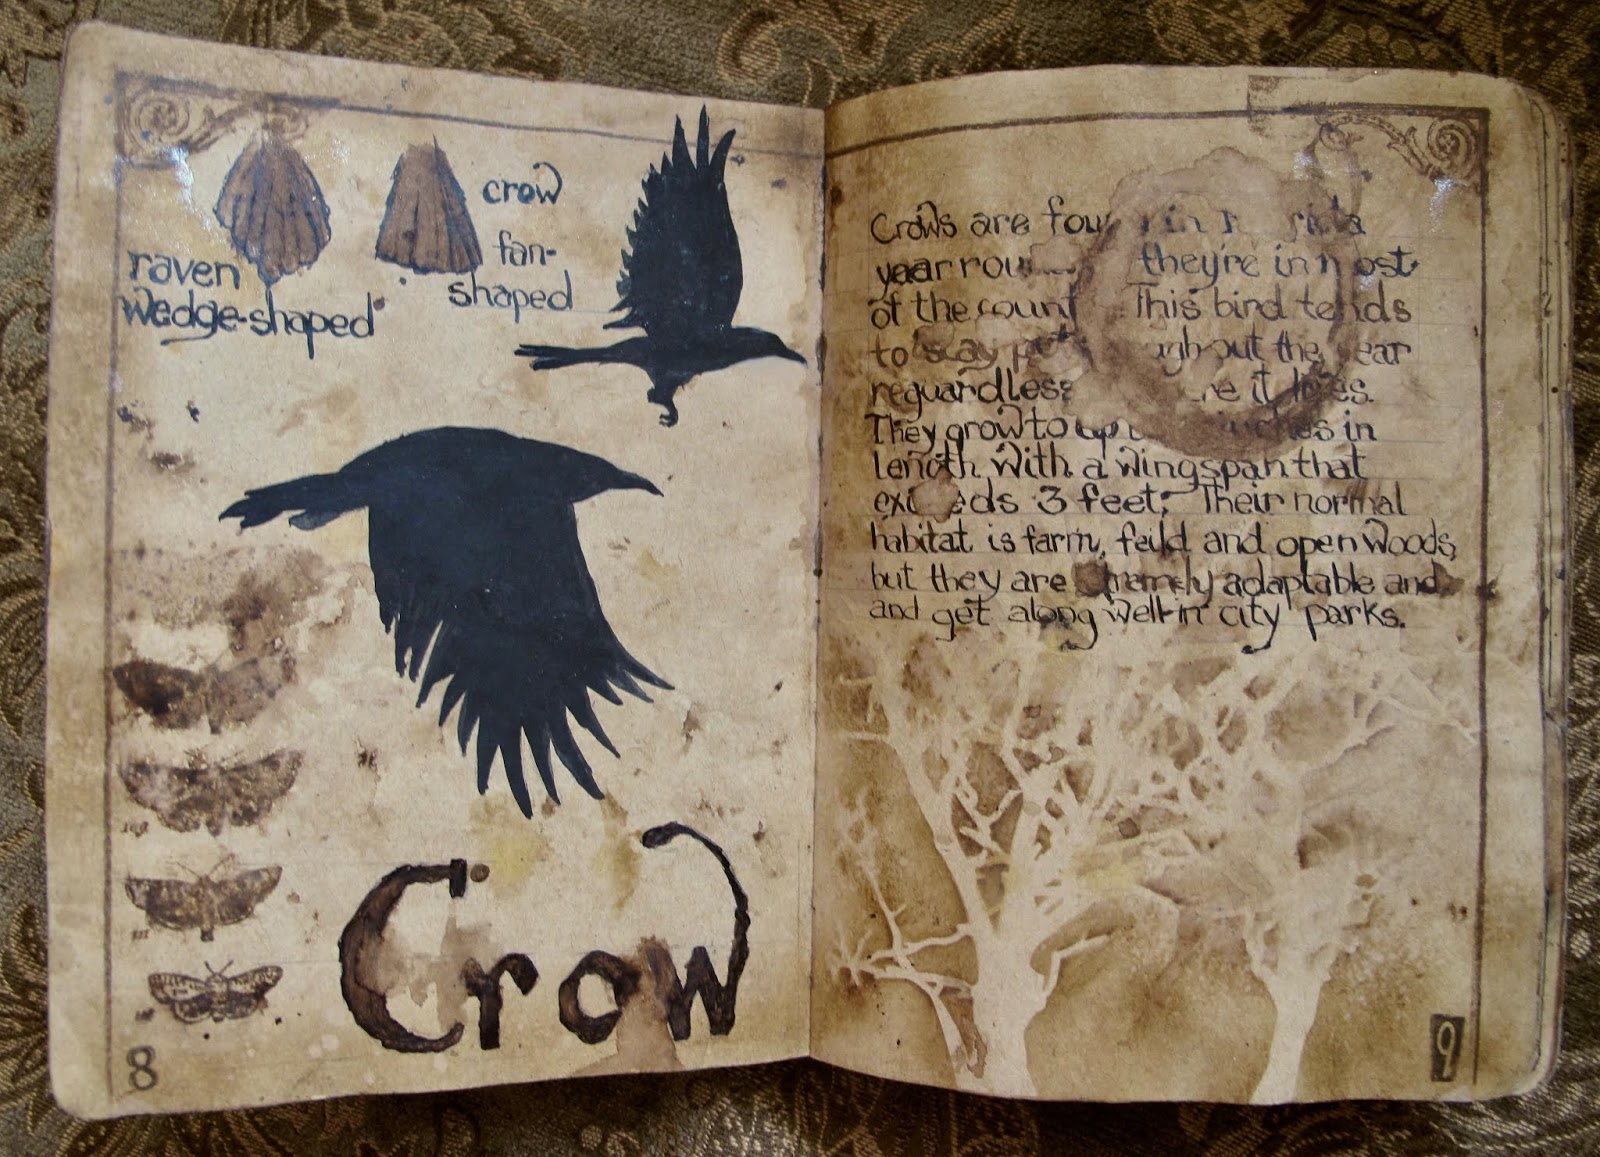 crow
fan-
shaped
raven
wedge-shaped
Crow
8
Crows are in
year they're in most
of the This bird tends
to stay the year
reguardless it lives.
They grow to up in
length with a wingspan that
exceeds 3 feet. Their normal
habitat is farm, feild and open woods,
but they are extremely adaptable and
and get along well in city parks.
9